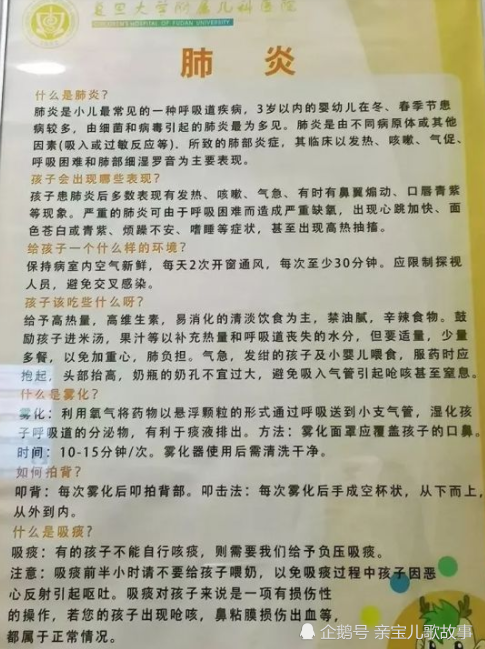 复旦大学附属儿科医院
CHILDREN'S HOSPITAL OF FUDAN UNIVERSITY
肺 炎
什么是肺炎?
肺炎是小儿最常见的一种呼吸道疾病,3岁以内的婴幼儿在冬、春季节患
病较多,由细菌和病毒引起的肺炎最为多见。肺炎是由不同病原体或其他
因素(吸入或过敏反应等)、所致的肺部炎症,其临床以发热、咳嗽、气促、
呼吸困难和肺部细湿罗音为主要表现。
孩子会出现哪些表现?
孩子患肺炎后多数表现有发热、咳嗽、气急、有时有鼻翼煽动、口唇青紫
等现象。严重的肺炎可由于呼吸困难而造成严重缺氧,出现心跳加快、面
色苍白或青紫、烦躁不安、嗜睡等症状,甚至出现高热抽搐。
给孩子一个什么样的环境?
保持病室内空气新鲜,每天2次开窗通风,每次至少30分钟。应限制探视
人员,避免交叉感染。
孩子该吃些什么呀?
给予高热量,高维生素,易消化的清淡饮食为主,禁油腻,辛辣食物。鼓
励孩子进米汤,果汁等以补充热量和呼吸道丧失的水分,但要适量,少量
多餐,以免加重心,肺负担。气急,发绀的孩子及小婴儿喂食,服药时应
抱起,头部抬高,奶瓶的奶孔不宜过大,避免吸入气管引起呛咳甚至窒息。
什么是雾化?
雾化:利用氧气将药物以悬浮颗粒的形式通过呼吸送到小支气管,湿化孩
子呼吸道的分泌物,有利于痰液排出。方法:雾化面罩应覆盖孩子的口鼻。
时间:10-15分钟/次。雾化器使用后需清洗干净。
如何拍背?
叩背:每次雾化后叩拍背部。叩击法:每次雾化后手成空杯状,从下而上,
从外到内。
什么是吸痰?
吸痰:有的孩子不能自行咳痰,则需要我们给予负压吸痰。
注意:吸痰前半小时请不要给孩子喂奶,以免吸痰过程中孩子因恶
心反射引起呕吐。吸痰对孩子来说是一项有损伤性
的操作,若您的孩子出现呛咳,鼻粘膜损伤出血等,
都属于正常情况。
企鹅号 亲宝儿歌故事